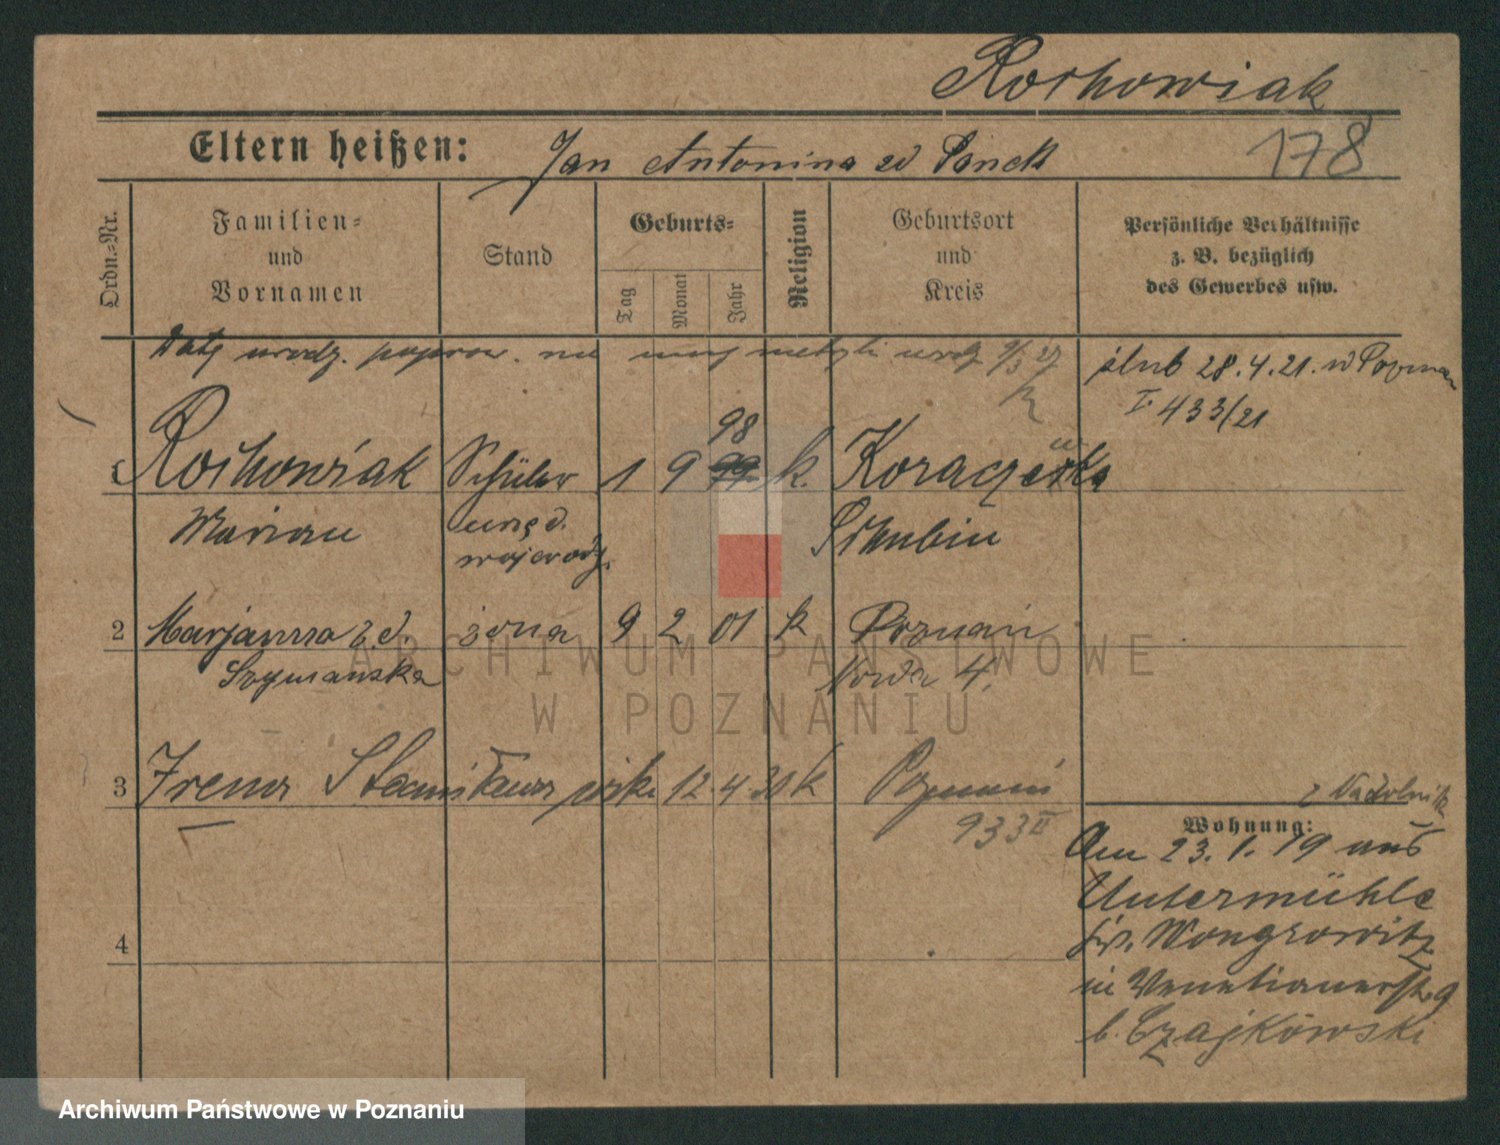 Rochowiak
Eltern heißen: Jan Antonina zd Panek
178
Ordn.-Nr.
Familien-
und
Vornamen
Stand
Geburts-
Tag
Monat
Jahr
Religion
Geburtsort
und
Kreis
Persönliche Verhältnisse
z. B. bezüglich
des Gewerbes usw.
Daty urodz. popraw. na metryki urodz 9/3 27
ślub 28.4.21. w Poznan
I. 433/21
98
1 Rochowiak Schüler 1 9 99 k. Koraczewka
Marian urzęd. Schubin
wojewódz.
2 Marjanna z d. żona 9 2 01 k Poznań
Szymanska 4.
3 Irena Stanisława córk. 12 4 30 k Poznań
933 II
Wohnung:
Am 23. 1. 19 aus
Untermühle
Krs. Wongrowitz
in Venetianerst. 9
b. Czajkowski
4
ARCHIWUM PAŃSTWOWE
W POZNANIU
Archiwum Państwowe w Poznaniu